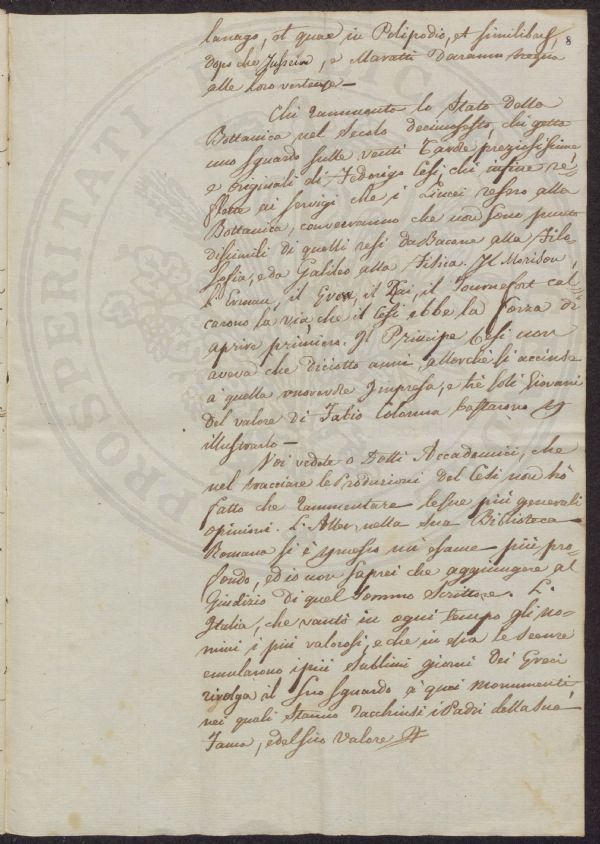 lanago, et quae in Polipodio, et similibus,
8
dopo che Jusseiu, e Maratti daranno tregua
alle loro vertenze –
Chi rammenta lo Stato della
Bottanica nel Secolo decimosesto, chi getta
uno sguardo sulle venti Tavole preziosissime,
e originali di Federigo Cesi, chi infine re=
flette ai servigi che i Lincei resero alla
Bottanica, converranno che non sono punto
dissimili di quelli resi da Bacone alla Filo
sofia, e da Galileo alla Fisica. Il Morison,
L'Erman, il Grew, il Rai, il Tournefort cal=
carono la via, che il Cesi ebbe la forza di
aprire primiero. Il Principe Cesi non
aveva che diciotto anni, allorchè si accinse
a quella impresa, e trè soli Giovani
del valore di Fabio Colonna bastarono
illustrarlo –
Voi vedete o Dotti Accademici, che
nel tracciare le Produzioni del Cesi non hò
fatto che rammentare le sue più generali
opinioni. L'Aller, nella sua Biblioteca
Romana si è in esame più pro=
fondo, ed io non saprei che aggiungere al
Giudizio di quel Sommo Scrittore. L'
Italia, che vantò in ogni tempo gli uo=
mini i più valorosi, e che in essa le Scienze
emularono i più sublimi giorni dei Greci
rivolga il suo sguardo a quei monumenti,
nei quali stanno racchiusi i Padri della sua
Fama, e del suo valore
PROSPERITATI PUBLICAE